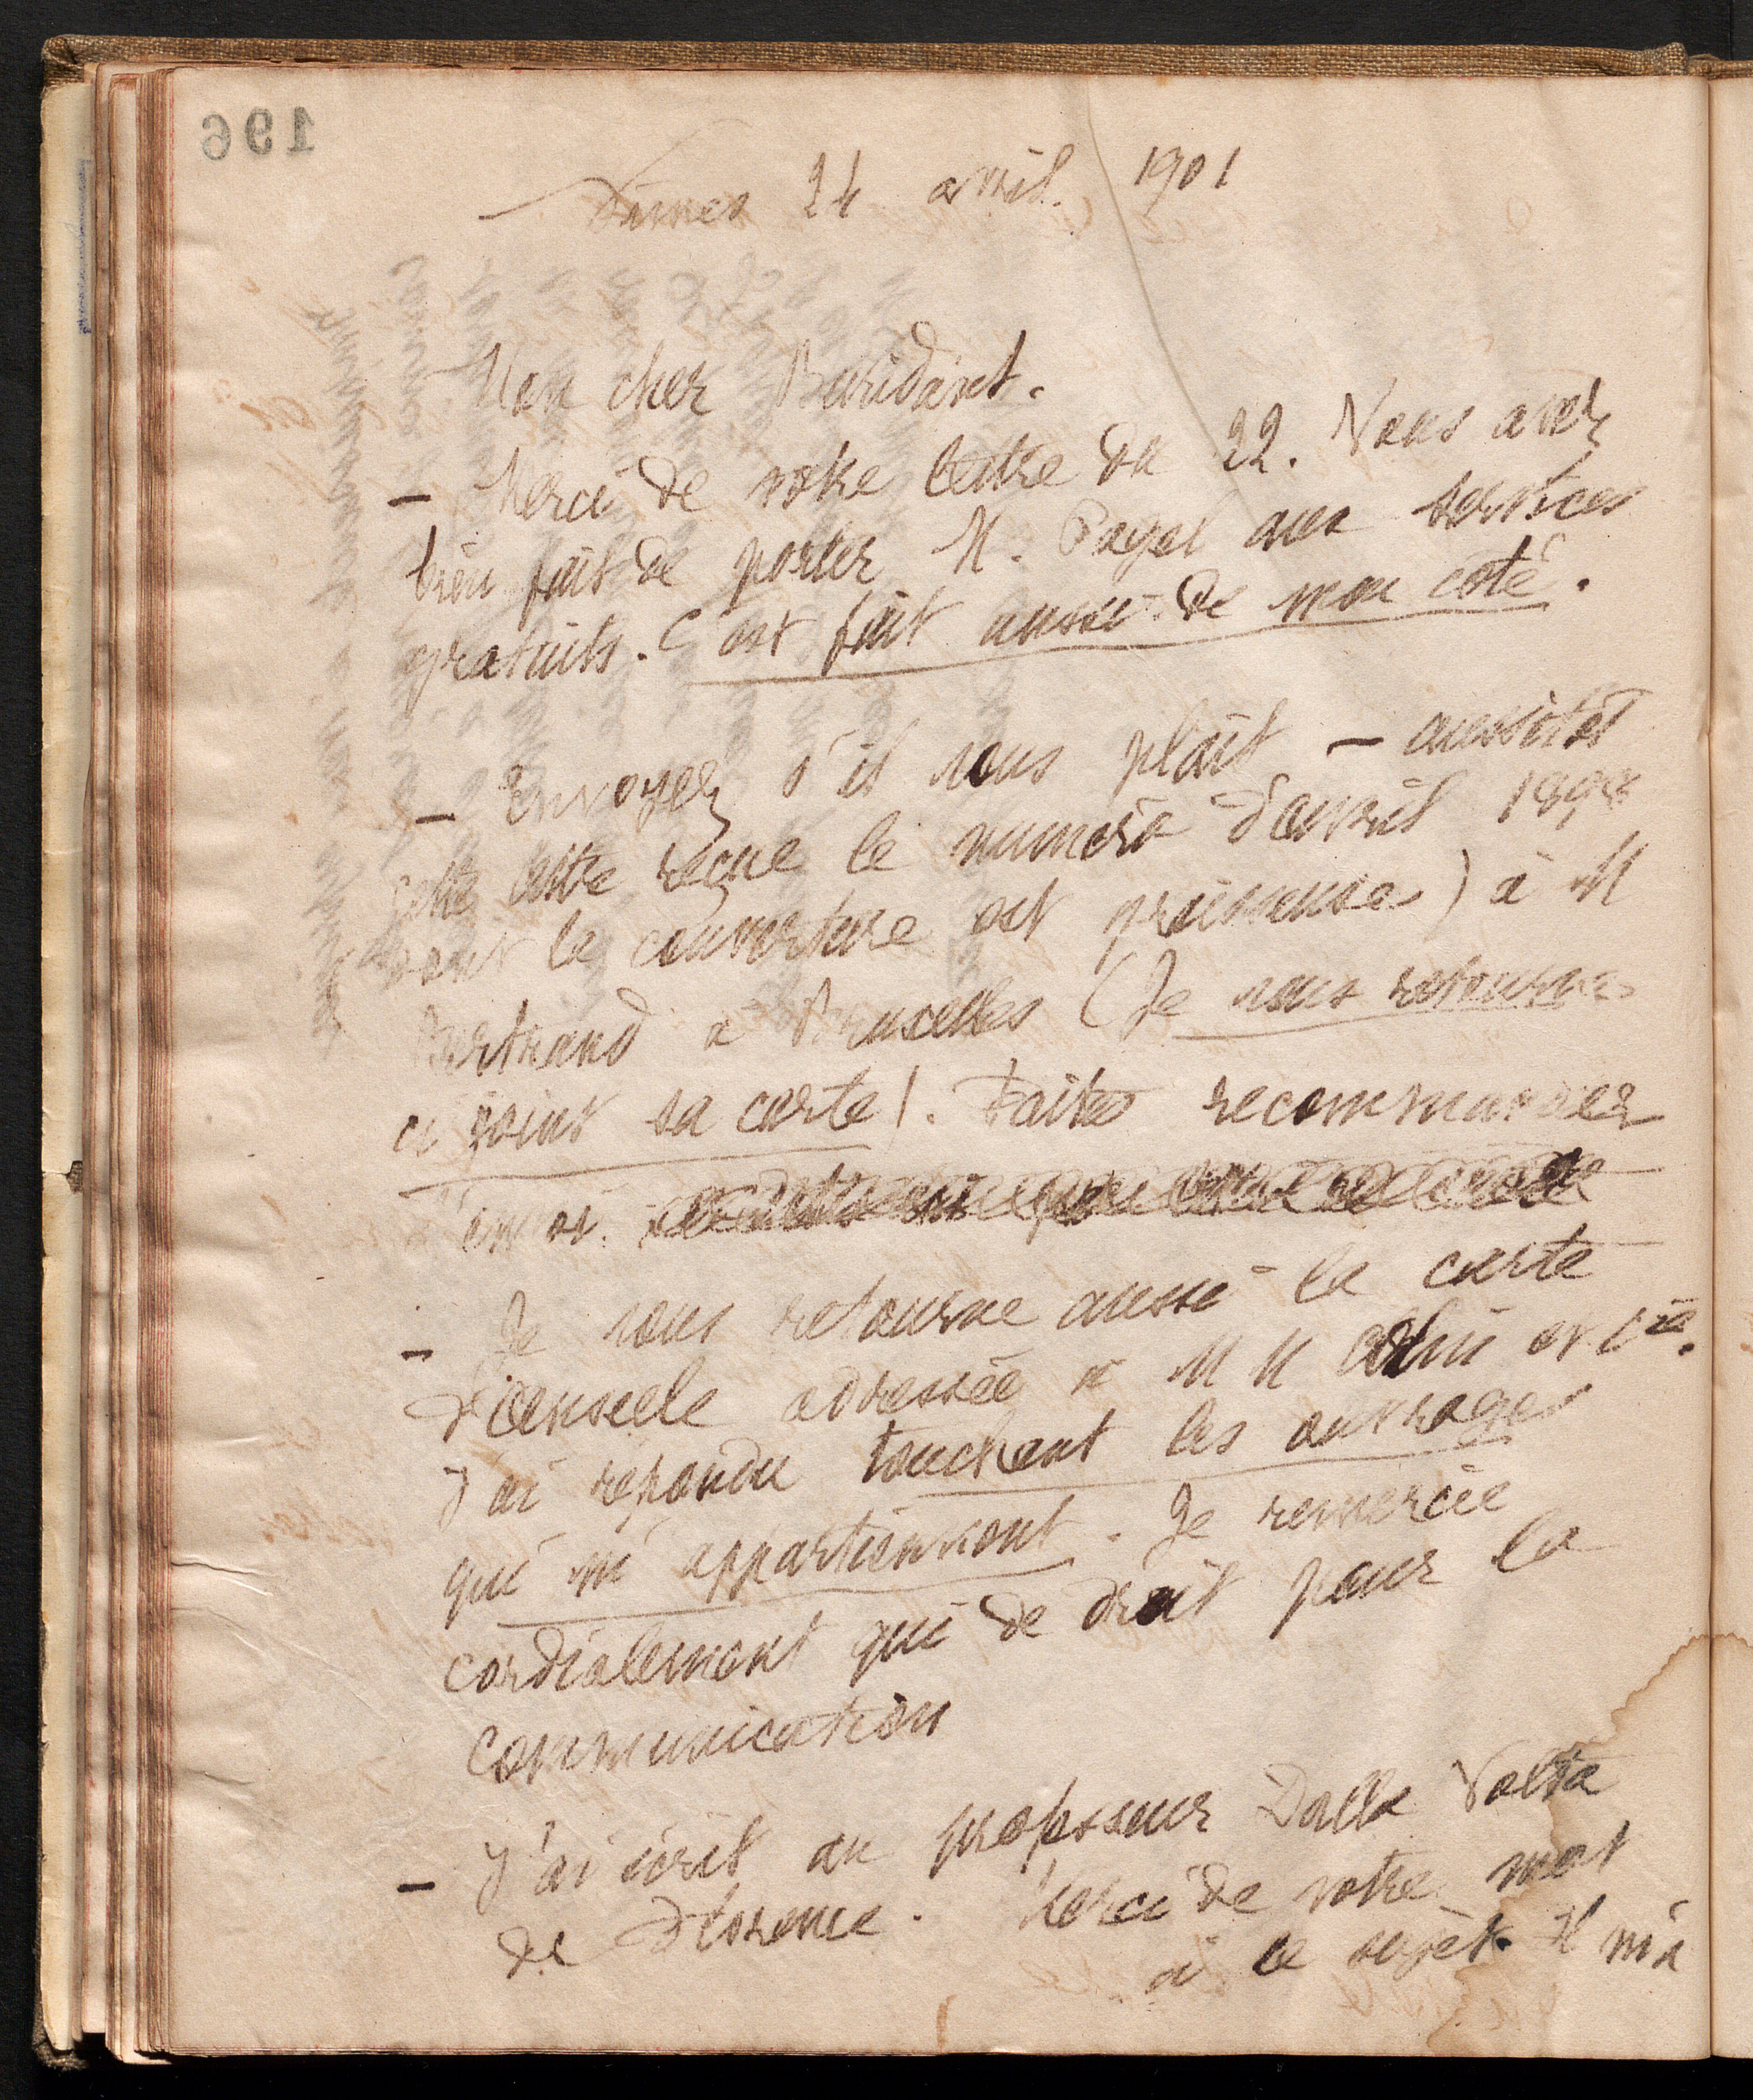 196
24 avril. 1901
Mon cher Buridant.
— Merci de votre lettre du 22. Vous avez
bien fait de porter M. Pagel aux services
gratuits. C'est fait aussi de mon côté.
— Envoyez s'il vous plait — aussitôt
cette lettre reçue le numéro d'avril 1898
dont la couverture est graisseuse) à M
Bertrand à Bruxelles (Je vous retourne
ci joint sa carte). Faites recommander
l'envoi.
— Je vous retourne aussi la carte
adressée à M M et Cie.
J'ai répondu touchant les ouvrages
qui m'appartiennent. Je remercie
cordialement qui de droit pour la
communication
— J'ai écrit au professeur Dalla Volta
de Florence. Merci de votre mot
à ce sujet. Il m'a